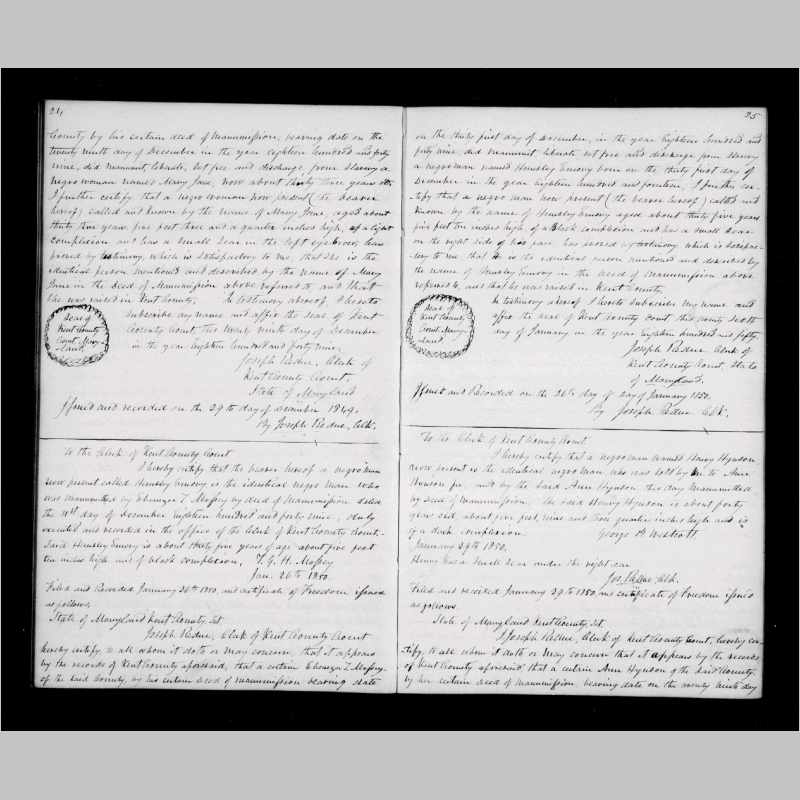 24
County by his certain deed of Manumission, bearing date on the
twenty ninth day of December in the year eighteen hundred and forty
nine, did manumit, liberate, set free and discharge from Slavery a
negro woman named Mary Jane, now about thirty three years old
I further certify that a negro woman now present (the bearer
hereof) called and known by the name of Mary Jane, aged about
thirty three years, five feet three and a quarter inches high, of a light
complexion and has a small scar in the left eyebrow, has
proved by testimony, which is satisfactory to me, that she is the
identical person mentioned and described by the name of Mary
Jane in the deed of Manumission above referred to, and that
she was raised in Kent County. In testimony whereof I hereto
Seal of Kent County Court Maryland
subscribe my name and affix the seal of Kent
County Court this twenty ninth day of December
in the year eighteen hundred and forty nine.
Joseph Redue, Clerk of
Kent County Court,
State of Maryland
Issued and recorded on the 29th day of December 1849.
By Joseph Redue, Clk.
To the Clerk of Kent County Court
I hereby certify that the bearer hereof a negro man
now present called Hensley Emory is the identical negro man who
was manumitted by Ebenezer T. Massey by deed of Manumission dated
the day of December eighteen hundred and forty nine, duly
executed and recorded in the office of the Clerk of Kent County Court.
Said Hensley Emory is about thirty five years of age about five feet
ten inches high and of black complexion. Massey
Jan. 26th 1850
Filed and Recorded January 26th 1850, and certificate of Freedom issued
as follows,
State of Maryland Kent County, Sct.
I Joseph Redue, Clerk of Kent County Court
hereby certify to all whom it doth or may concern, that it appears
by the records of Kent County aforesaid, that a certain Ebenezer T. Massey
of the said County, by his certain deed of manumission bearing date
25
on the thirty first day of December, in the year eighteen hundred and
forty nine did manumit liberate set free and discharge from Slavery
a negro man named Hensley Emory born on the thirty first day of
December in the year eighteen hundred and fourteen, I further cer-
tify that a negro man now present (the bearer hereof) called and
known by the name of Hensley Emory aged about thirty five years
five feet ten inches high of a Black complexion and has a small scar
on the right side of his face has proved by testimony which is satisfac-
tory to me that he is the identical person mentioned and described by
the name of Hensley Emory in the deed of manumission above
referred to, and that he was raised in Kent County
Seal of Kent County Court Maryland
In testimony whereof I hereto subscribe my name and
affix the seal of Kent County Court this twenty sixth
day of January in the year eighteen hundred and fifty.
Joseph Redue Clerk of
Kent County Court, State
of Maryland.
Issued and Recorded on the 26th day of January 1850.
By Joseph Redue Clk.
To the Clerk of Kent County Court
I hereby certify that a negro man named Henry Hynson
now present is the identical negro man, who was sold by to Ann
Hynson and by the said Ann Hynson this day Manumitted
by deed of manumission. The said Henry Hynson is about forty
years old, about five feet, nine and three quarter inches high and is
of a dark complexion. George B. Westcott.
January 29th 1850.
Henry has a small scar under the right ear
Jos. Redue, Clk.
Filed and received January 29th 1850 and certificate of Freedom issued
as follows
State of Maryland Kent County, Sct.
I Joseph Redue, Clerk of Kent County Court, hereby cer-
tify, to all whom it doth or may concern that it appears by the records
of Kent County aforesaid that a certain Ann Hynson of the said County,
by her certain deed of manumission, bearing date on the twenty ninth day